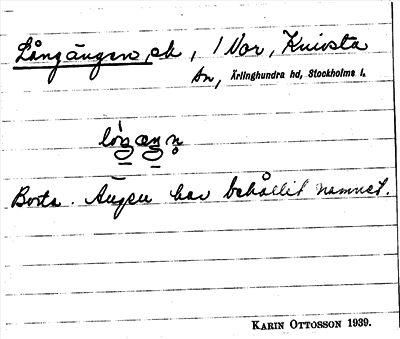 Långängen, ek, 1 Vor, Knivsta
sn, Ärlinghundra hd, Stockholms l.
Borta. Ängen har behållit namnet.
KARIN OTTOSSON 1939.